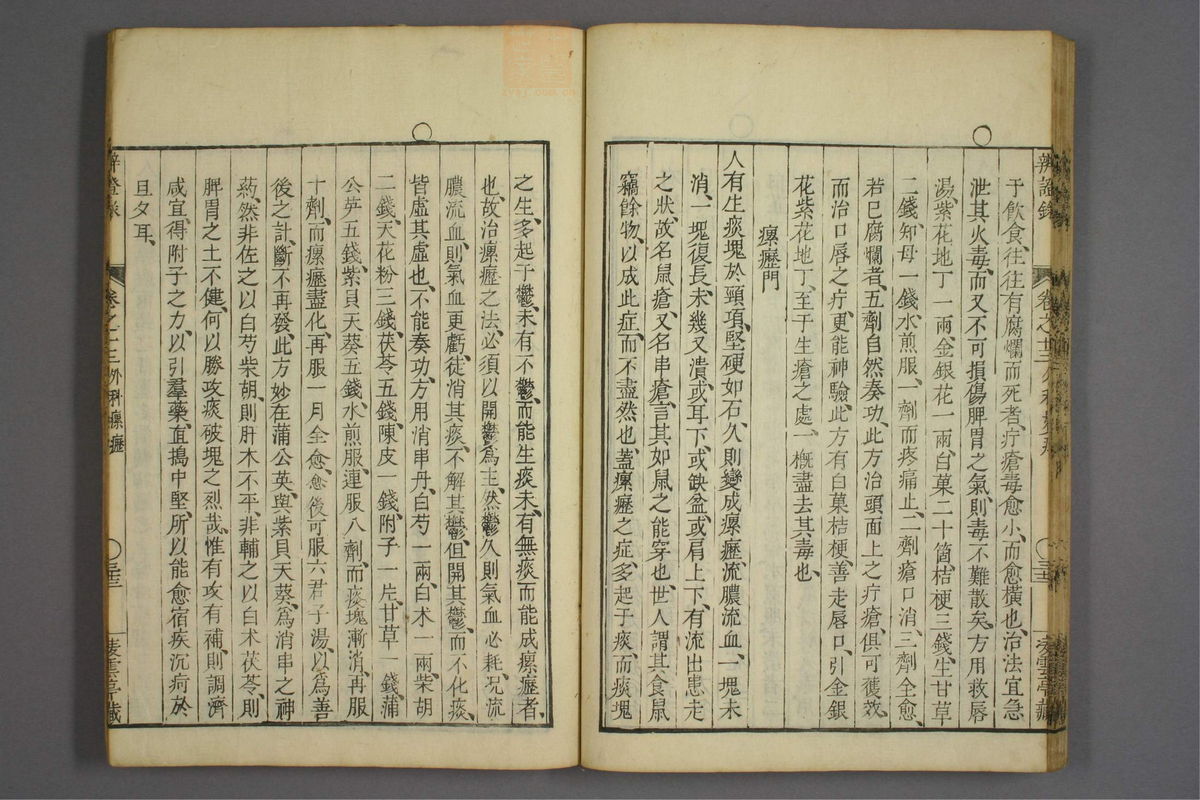 于飲食、往往有腐爛而死者、疔瘡毒愈小、而愈橫也、治法宜急
泄其火毒、而又不可損傷脾胃之氣、則毒不難散矣、方用救唇
湯、紫花地丁一兩、金銀花一兩、白菓二十箇、桔梗三錢、生甘草
二錢、知母一錢、水煎服、一劑而疼痛止、二劑瘡口消、三劑全愈、
若已腐爛者、五劑自然奏功、此方治頭面上之疔瘡、俱可獲效、
而治口唇之疔、更能神驗、此方有白菓桔梗、善走唇口、引金銀
花紫花地丁、至于生瘡之處、一概盡去其毒也、
瘰癧門
人有生痰塊於頸項、堅硬如石、久則變成瘰癧、流膿流血、一塊未
消、一塊復長、未幾又潰、或耳下、或缺盆、或肩上下、有流出患走
之狀、故名鼠瘡、又名串瘡、言其如鼠之能穿也、世人謂其食鼠
竊餘物、以成此症、而不盡然也、蓋瘰癧之症、多起于痰、而痰塊
之生、多起于鬱、未有不鬱而能生痰、未有無痰而能成瘰癧者、
也、故治瘰癧之法、必須以開鬱為主、然鬱久則氣血必耗、况流
膿流血、則氣血更虧、徒消其痰、不解其鬱、但開其鬱、而不化痰、
皆虛其虛也、不能奏功、方用消串丹、白芍一兩、白术一兩、柴胡
二錢、天花粉三錢、茯苓五錢、陳皮一錢、附子一片、甘草一錢、蒲
公英五錢、紫貝天葵五錢、水煎服、連服八劑、而痰塊漸消、再服
十劑、而瘰癧盡化、再服一月全愈、愈後可服六君子湯、以為善
後之計、斷不再發、此方妙在蒲公英與紫貝天葵、為消串之神
葯、然非佐之以白芍柴胡、則肝木不平、非輔之以白术茯苓、則
脾胃之土不健、何以勝攻痰破塊之烈哉、惟有攻有補、則調濟
咸宜、得附子之力、以引羣藥、直搗中堅、所以能愈宿疾沉疴於
旦夕耳、
卷之十三外科瘰癧
〇三三